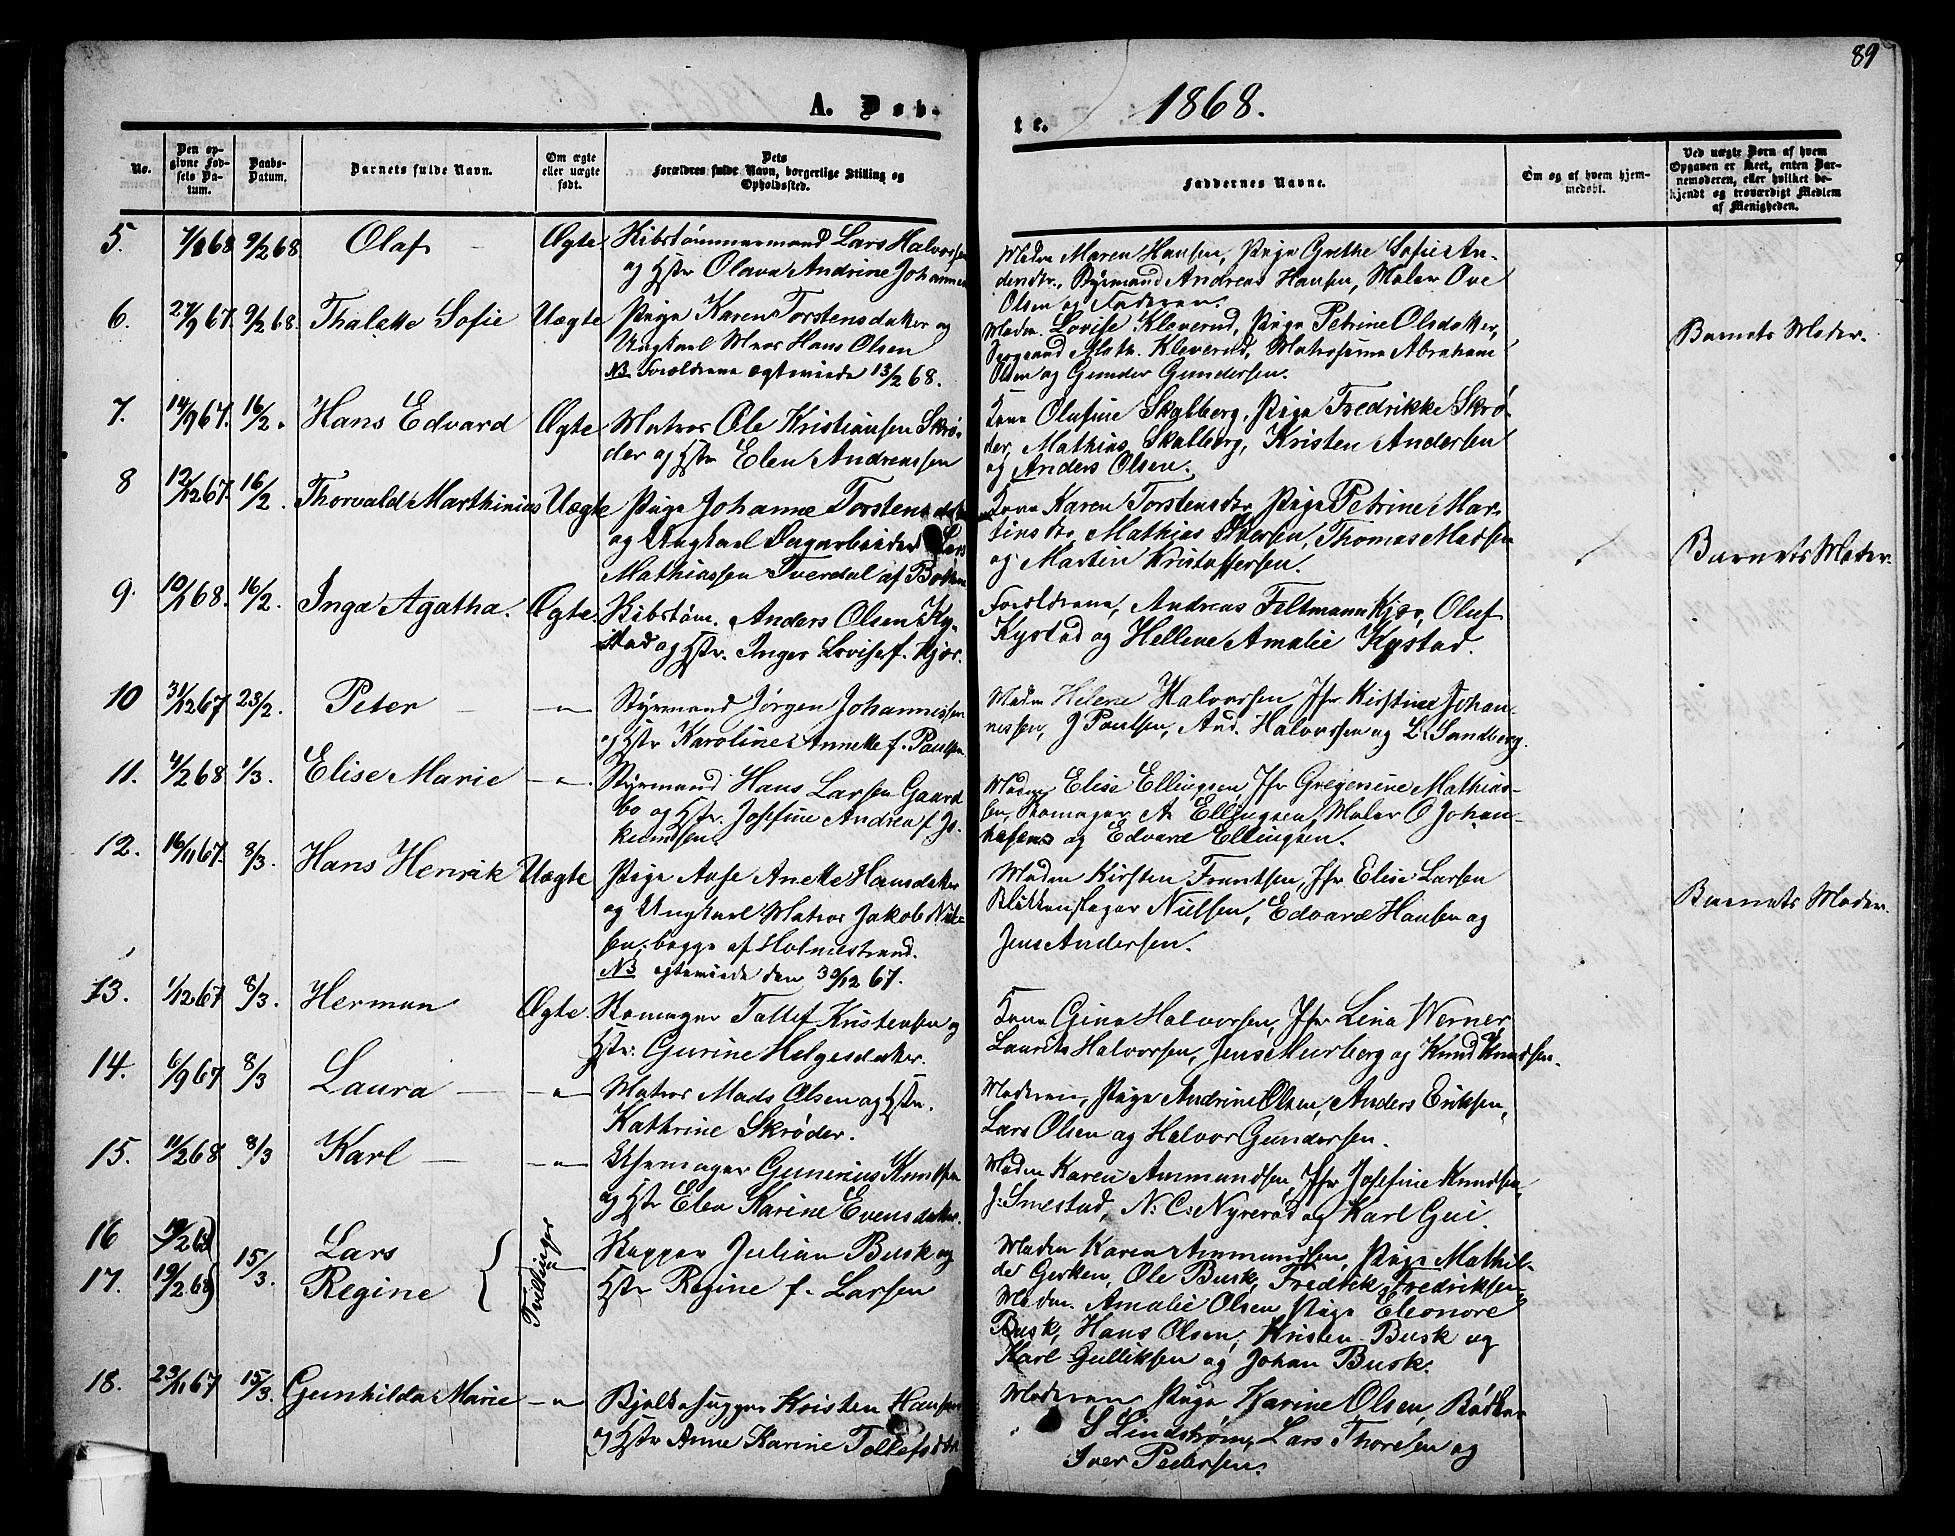 89
1868.
A. Døb-
te.
No.
Den op-
givne Fød-
sels Da-
tum.
Daabs-
Datum.
Barnets fulde Navn.
Om ægte
eller uægte
født.
Dets
Forældres fulde Navn, borgerlige Stilling og
Opholdssted.
Faddernes Navne.
Om og af hvem hjem-
medøbt.
Ved uægte Børn af hvem
Opgaven er skeet, enten Bar-
nemoderen, eller hvilket be-
kjendt og troværdigt Medlem
af Menigheden.
5. 68 9/2 68 Olaf Ægte Skibstømmermand Lars Halvorsen
og Hstr Olava Andrine Johannes
Madm Maren Hansen, Pige Grethe Sofie An-
dersdtr., Styrmand Andreas Hansen, Maler Ove
Olsen og Faderen.
6. 27/9 67. 9/2 68. Thalette Sofie Uægte Pige Karen Torstensdatter og
Ungkarl Matros Hans Olsen
NB Forældrene ægteviede 13/2 68.
Madm. Lovise Kleverud, Pige Petrine Olsdatter,
Sergeand Math. Kleverud, Matroserne Abraham
Olsen og Gunder Gundersen.
Barnets Moder.
7. 14/9 67. 16/2. Hans Edvard Ægte Matros Ole Kristiansen Skrø-
der og Hstr Elen Andreassen
Kone Olufine Skalberg, Pige Fredrikke Skrø-
der, Mathias Skalberg, Kristen Andersen
og Anders Olsen.
8 12/12 67. 16/2. Thorvald Marthinius Uægte Pige Johanne Torstensdatter
og Ungkarl Dagarbeider Lars
Mathiassen Tverdal af Botne
Kone Karen Torstensdtr, Pige Petrine Mar-
tinsdtr, Mathias Iversen, Thomas Madsen
og Martin Kristoffersen.
Barnets Moder.
9. 10/1 68. 16/2. Inga Agatha. Ægte. Skibstøm. Anders Olsen Ky-
stad og Hstr. Inger Lovise f. Kjær.
Forældrene, Andreas Feltmann Kjær, Oluf
Kystad og Hellene Amalie Kystad.
10 31/12 67 23/2. Peter - -"- Styrmand Jørgen Johannessen
og Hstr Karoline Annette f. Paulsen
Madm Helene Halvorsen Jfr Kirstine Johan-
nessen, J Poulsen, And. Halvorsen og L. Sandberg.
11. 4/2 68 1/3. Elise Marie -"- Styrmand Hans Larsen Gaard
bo og Hstr. Josefine Andrea f. Jo-
Madm Elise Ellingsen Jfr Gregersine Mathias-
sen, Skomager A. Ellingsen, Maler O Johan-
nesens og Edvard Ellingsen.
12. 16/11 67. 8/3. Hans Henrik Uægte Pige Aase Anette Hansdatter
og Ungkarl Matros Jakob Niel-
sen, begge af Holmestrand.
NB ægteviede den 30/12 67.
Madm Kirsten Frantsen, Jfr Elise Larsen
Blikkenslager Nielsen, Edvard Hansen og
Jens Andersen.
Barnets Moder.
13. 1/12 67 8/3. Herman Ægte. Skomager Tollef Kristensen og
Hstr. Gurine Helgesdatter.
Kone Gina Halvorsen, Jfr Lina Werner,
Laurits Halvorsen, Jens Murberg og Knud Knudsen.
14. 6/9 67 8/3 Laura - -"- Matros Mads Olsen og Hstr.
Kathrine Skrøder.
Moderen, Pige Andrine Olsen, Anders Eriksen,
Lars Olsen og Halvor Gundersen.
15. 11/2 68 8/3 Karl - -"- Uhrmager Gunerius Knudsen
og Hstr Elen Karine Evensdatter.
Madm Karen Ammundsen, Jfr Josefine Knudsen,
J. Smestad, N. C. Nyrerød og Karl Gui.
16 19/2 68 15/3. Lars Tvillinger Skipper Julian Busk og
17. 19/2 68 Regine Hstr Regine f. Larsen
Madm Karen Ammundsen, Pige Mathil-
de Gerken, Ole Busk, Fredrik Fredriksen
Madm. Amalie Olsen, Pige Eleonore
Busk, Hans Olsen, Kristen Busk og
Karl Gulliksen og Johan Busk.
18. 23/11 67 15/3. Gunhilda Marie -"- Bjelkehugger Kristen Hansen
og Hstr Anne Karine Tollefsdtr
Moderen, Pige Karine Olsen, Bødker
S Lindstrøm, Lars Thoresen og
Iver Pedersen.